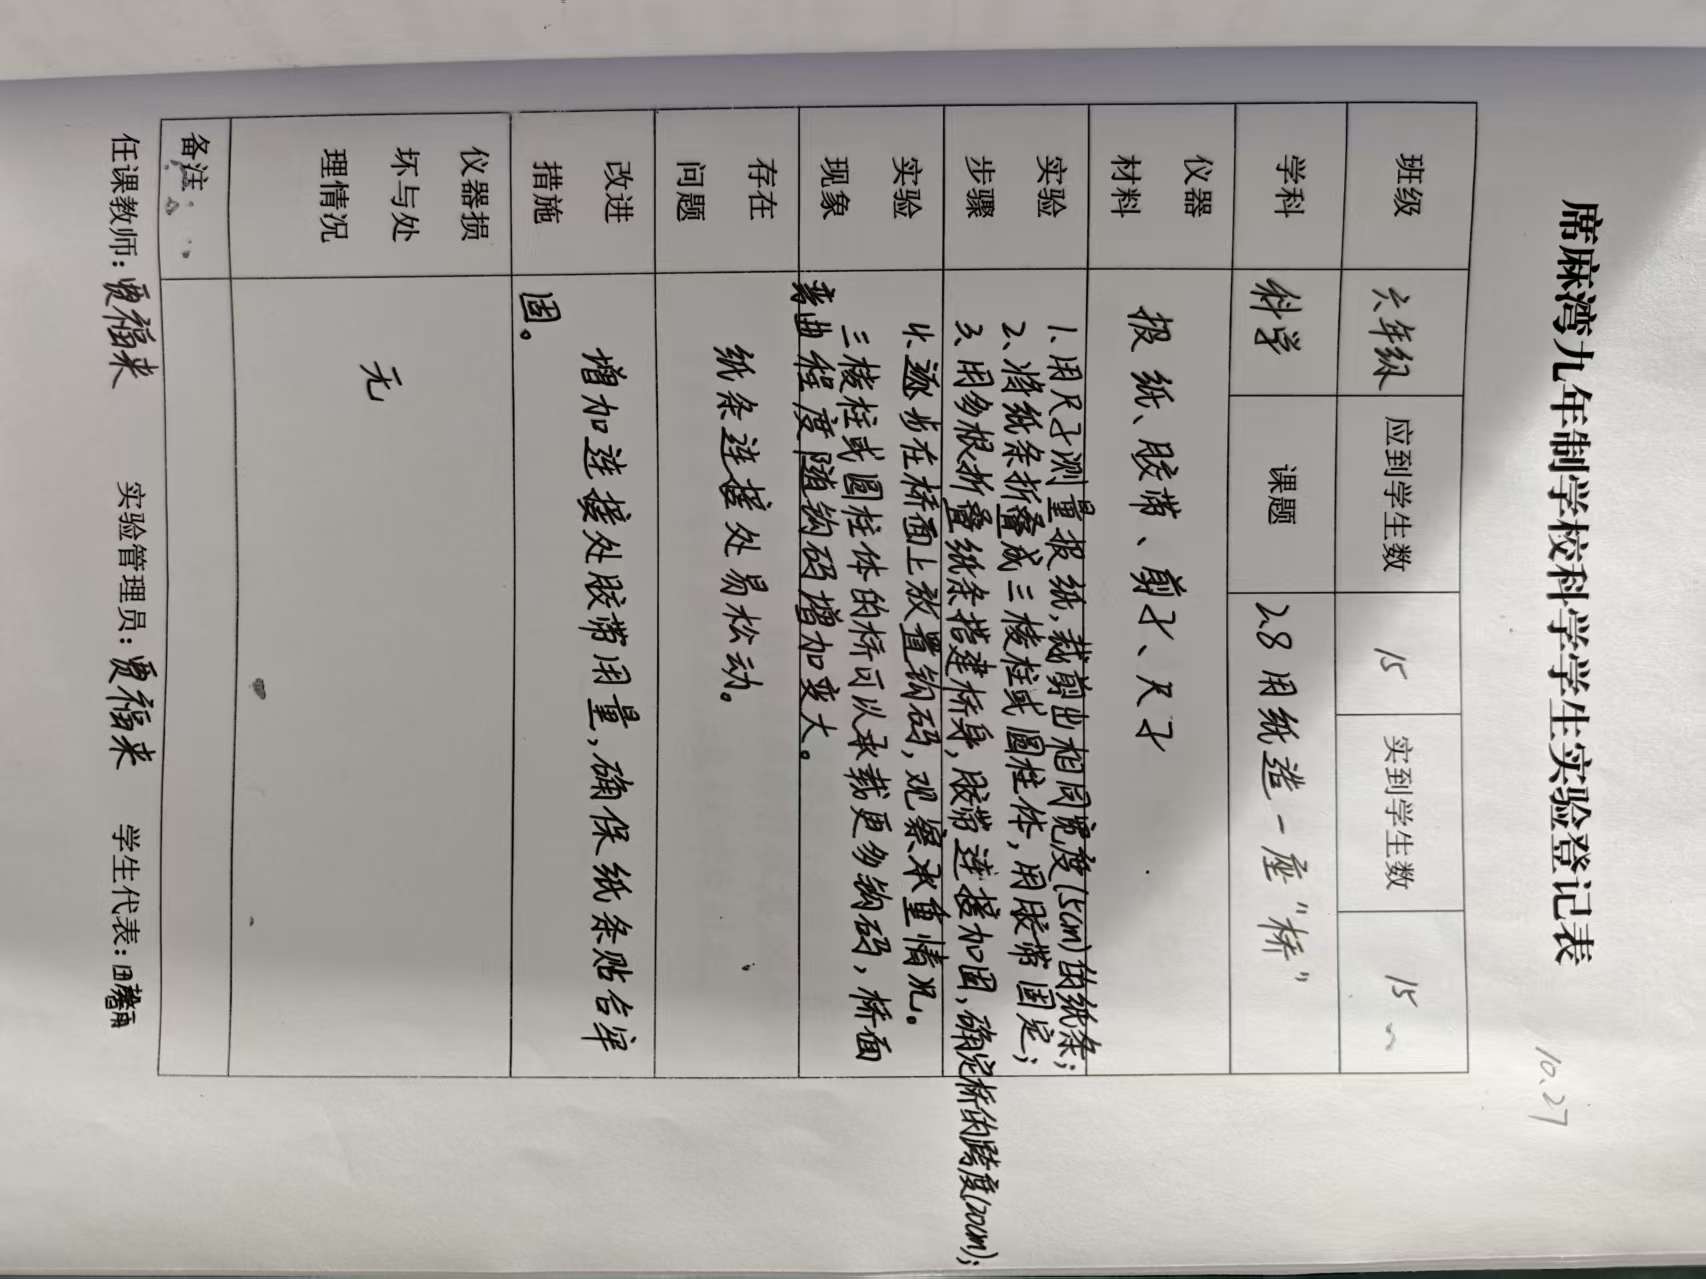 席麻湾九年制学校科学学生实验登记表
10.27
班级 六年级 应到学生数 15 实到学生数 15
学科 科学 课题 2.8用纸造一座“桥”
仪器
材料
报纸、胶带、剪子、尺子
实验
步骤
1.用尺子测量报纸,裁剪出相同宽度(15cm)的纸条;
2、将纸条折叠成三棱柱或圆柱体,用胶带固定;
3、用多根折叠纸条搭建桥身,胶带连接加固,确定桥的跨度(20cm);
4、逐步在桥面上放置钩码,观察承重情况。
实验
现象
三棱柱或圆柱体的桥可以承载更多钩码,桥面
弯曲程度随钩码增加变大。
存在
问题
纸条连接处易松动。
改进
措施
增加连接处胶带用量,确保纸条贴合牢
固。
仪器损
坏与处
理情况
无
备注
任课教师:贾福来 实验管理员:贾福来 学生代表:田馨雨